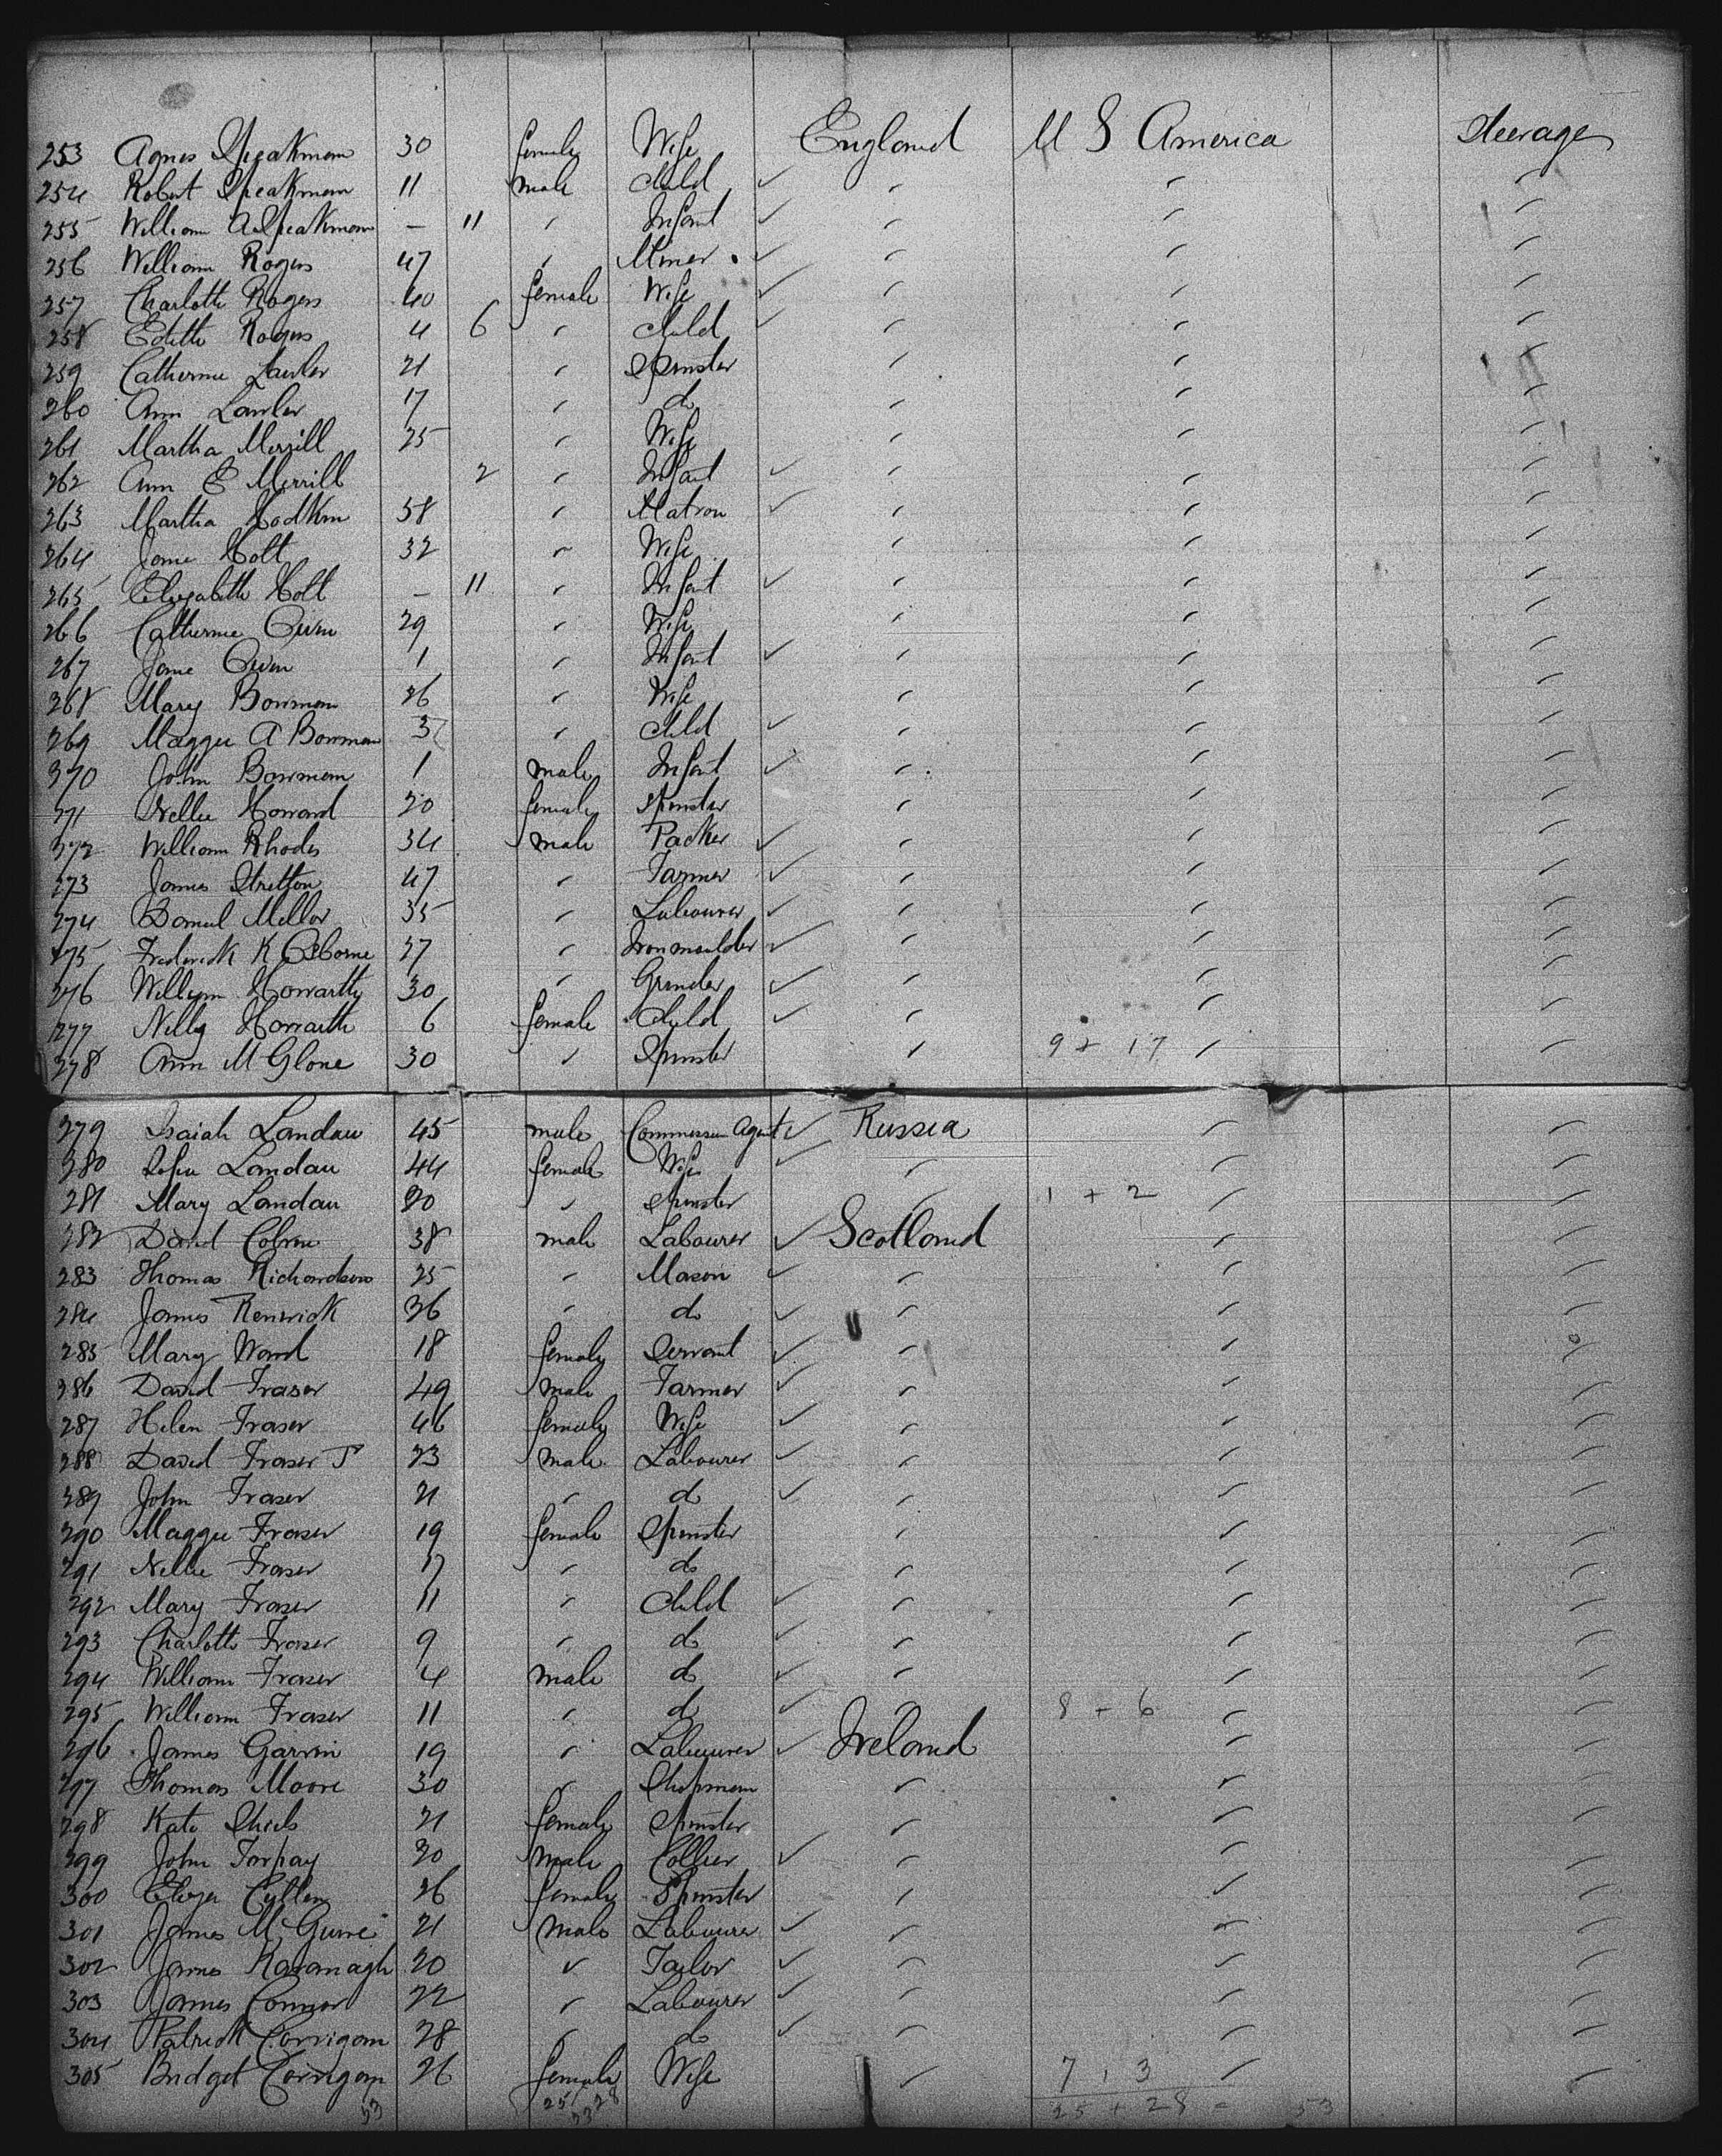 253 Agnes Speakman 30 female Wife England U S America Steerage
254 Robert Speakman 11 male Child ✓ " " "
255 William A Speakman – 11 " Infant ✓ " " "
256 William Rogers 47 " Miner ✓ " " "
257 Charlotte Rogers 40 female Wife ✓ " " "
258 Edith Rogers 4 6 " Child ✓ " " "
259 Catherine Lawler 21 " Spinster " " "
260 Ann Lawler 17 " do " " "
261 Martha Merrill 25 " Wife " " "
262 Ann E Merrill 2 " Infant ✓ " " "
263 Martha Hodkin 58 " Matron ✓ " " "
264 Jane Holt 32 " Wife " " "
265 Elizabeth Holt – 11 " Infant ✓ " " "
266 Catherine Owen 29 " Wife " " "
267 Jane Owen 1 " Infant ✓ " " "
268 Mary Bowman 26 " Wife " " "
269 Maggie A Bowman 3 " Child ✓ " " "
270 John Bowman 1 male Infant ✓ " " "
271 Nellie Howard 20 female Spinster " " "
272 William Rhodes 34 male Packer ✓ " " "
273 James Stretton 47 " Farmer ✓ " " "
274 Samuel Mellor 35 " Labourer ✓ " " "
275 Frederick K Osborne 27 " Iron moulder ✓ " " "
276 William Howarth 30 " Grinder ✓ " " "
277 Nelly Howarth 6 female Child ✓ " " "
278 Ann M Glone 30 " Spinster " 9 + 17 " "
279 Isaiah Landau 45 male Commission Agent ✓ Russia " "
280 Landau 44 female Wife ✓ " " "
281 Mary Landau 20 " Spinster " 1 + 2 " "
282 David 38 male Labourer ✓ Scotland " "
283 Thomas Richardson 25 " Mason ✓ " " "
284 James Renwick 26 " do ✓ " " "
285 Mary Ward 18 female Servant ✓ " " "
286 David Fraser 49 male Farmer ✓ " " "
287 Helen Fraser 46 female Wife ✓ " " "
288 David Fraser Jr 23 male Labourer ✓ " " "
289 John Fraser 21 " do ✓ " " "
290 Maggie Fraser 19 female Spinster " " "
291 Nellie Fraser 17 " do " " "
292 Mary Fraser 11 " Child ✓ " " "
293 Charlotte Fraser 9 " do ✓ " " "
294 William Fraser 4 male do ✓ " " "
295 William Fraser 11 " do ✓ " 8 + 6 " "
296 James Garvin 19 " Labourer ✓ Ireland " "
297 Thomas Moore 30 " Shopman " " "
298 Kate Shiels 21 female Spinster " " "
299 John Torpay 20 male Collier ✓ " " "
300 Eliza Cullen 26 female Spinster " " "
301 James 21 male Labourer ✓ " " "
302 James Kavanagh 20 " Tailor ✓ " " "
303 James Connor 22 " Labourer ✓ " " "
304 Patrick Corrigan 28 " do ✓ " " "
305 Bridget Corrigan 26 female Wife " 7 + 3 " "
53 25 28 53 25 + 28 = 53